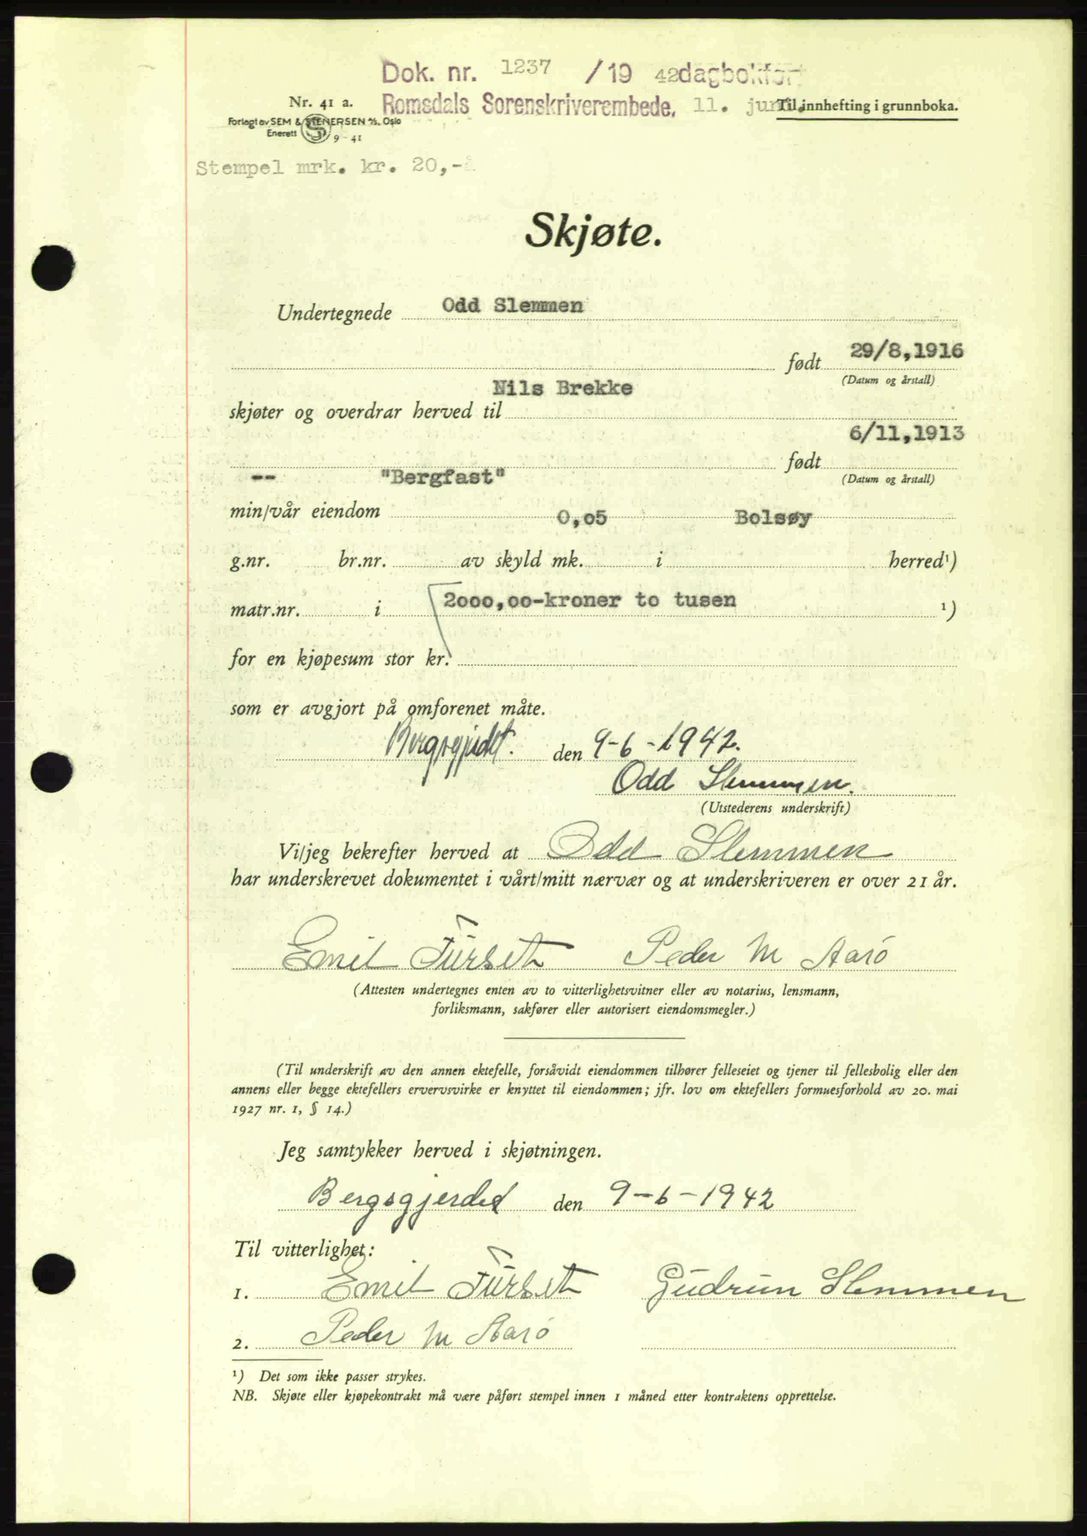 Dok. nr. 1237 /19 42 dagbokfør
Nr. 41 a.
Romsdals Sorenskriverembede, 11. juni Til innhefting i grunnboka.
Forlagt av SEM & STENERSEN A/S, Oslo
Enerett 9-41
Stempel mrk. kr. 20,-
Skjøte.
Undertegnede Odd Slemmen
født 29/8,1916
(Datum og årstall)
skjøter og overdrar herved til Nils Brekke
født 6/11,1913
(Datum og årstall)
min/vår eiendom -- "Bergfast"
0,05 Bolsøy
g.nr. br.nr. av skyld mk. i herred¹)
matr.nr. i ¹)
2000,00-kroner to tusen
for en kjøpesum stor kr.
som er avgjort på omforenet måte.
den 9-6-1942.
Odd Slemmen.
(Utstederens underskrift)
Vi/jeg bekrefter herved at Odd Slemmen
har underskrevet dokumentet i vårt/mitt nærvær og at underskriveren er over 21 år.
Emil Fürset Peder M Aarö
(Attesten undertegnes enten av to vitterlighetsvitner eller av notarius, lensmann,
forliksmann, sakfører eller autorisert eiendomsmegler.)
(Til underskrift av den annen ektefelle, forsåvidt eiendommen tilhører felleseiet og tjener til fellesbolig eller den
annens eller begge ektefellers ervervsvirke er knyttet til eiendommen; jfr. lov om ektefellers formuesforhold av 20. mai
1927 nr. 1, § 14.)
Jeg samtykker herved i skjøtningen.
Bergsgjerdet den 9-6-1942
Til vitterlighet:
1. Emil Fürset Gudrun Slemmen
2. Peder M Aarö
¹) Det som ikke passer strykes.
NB. Skjøte eller kjøpekontrakt må være påført stempel innen 1 måned etter kontraktens opprettelse.